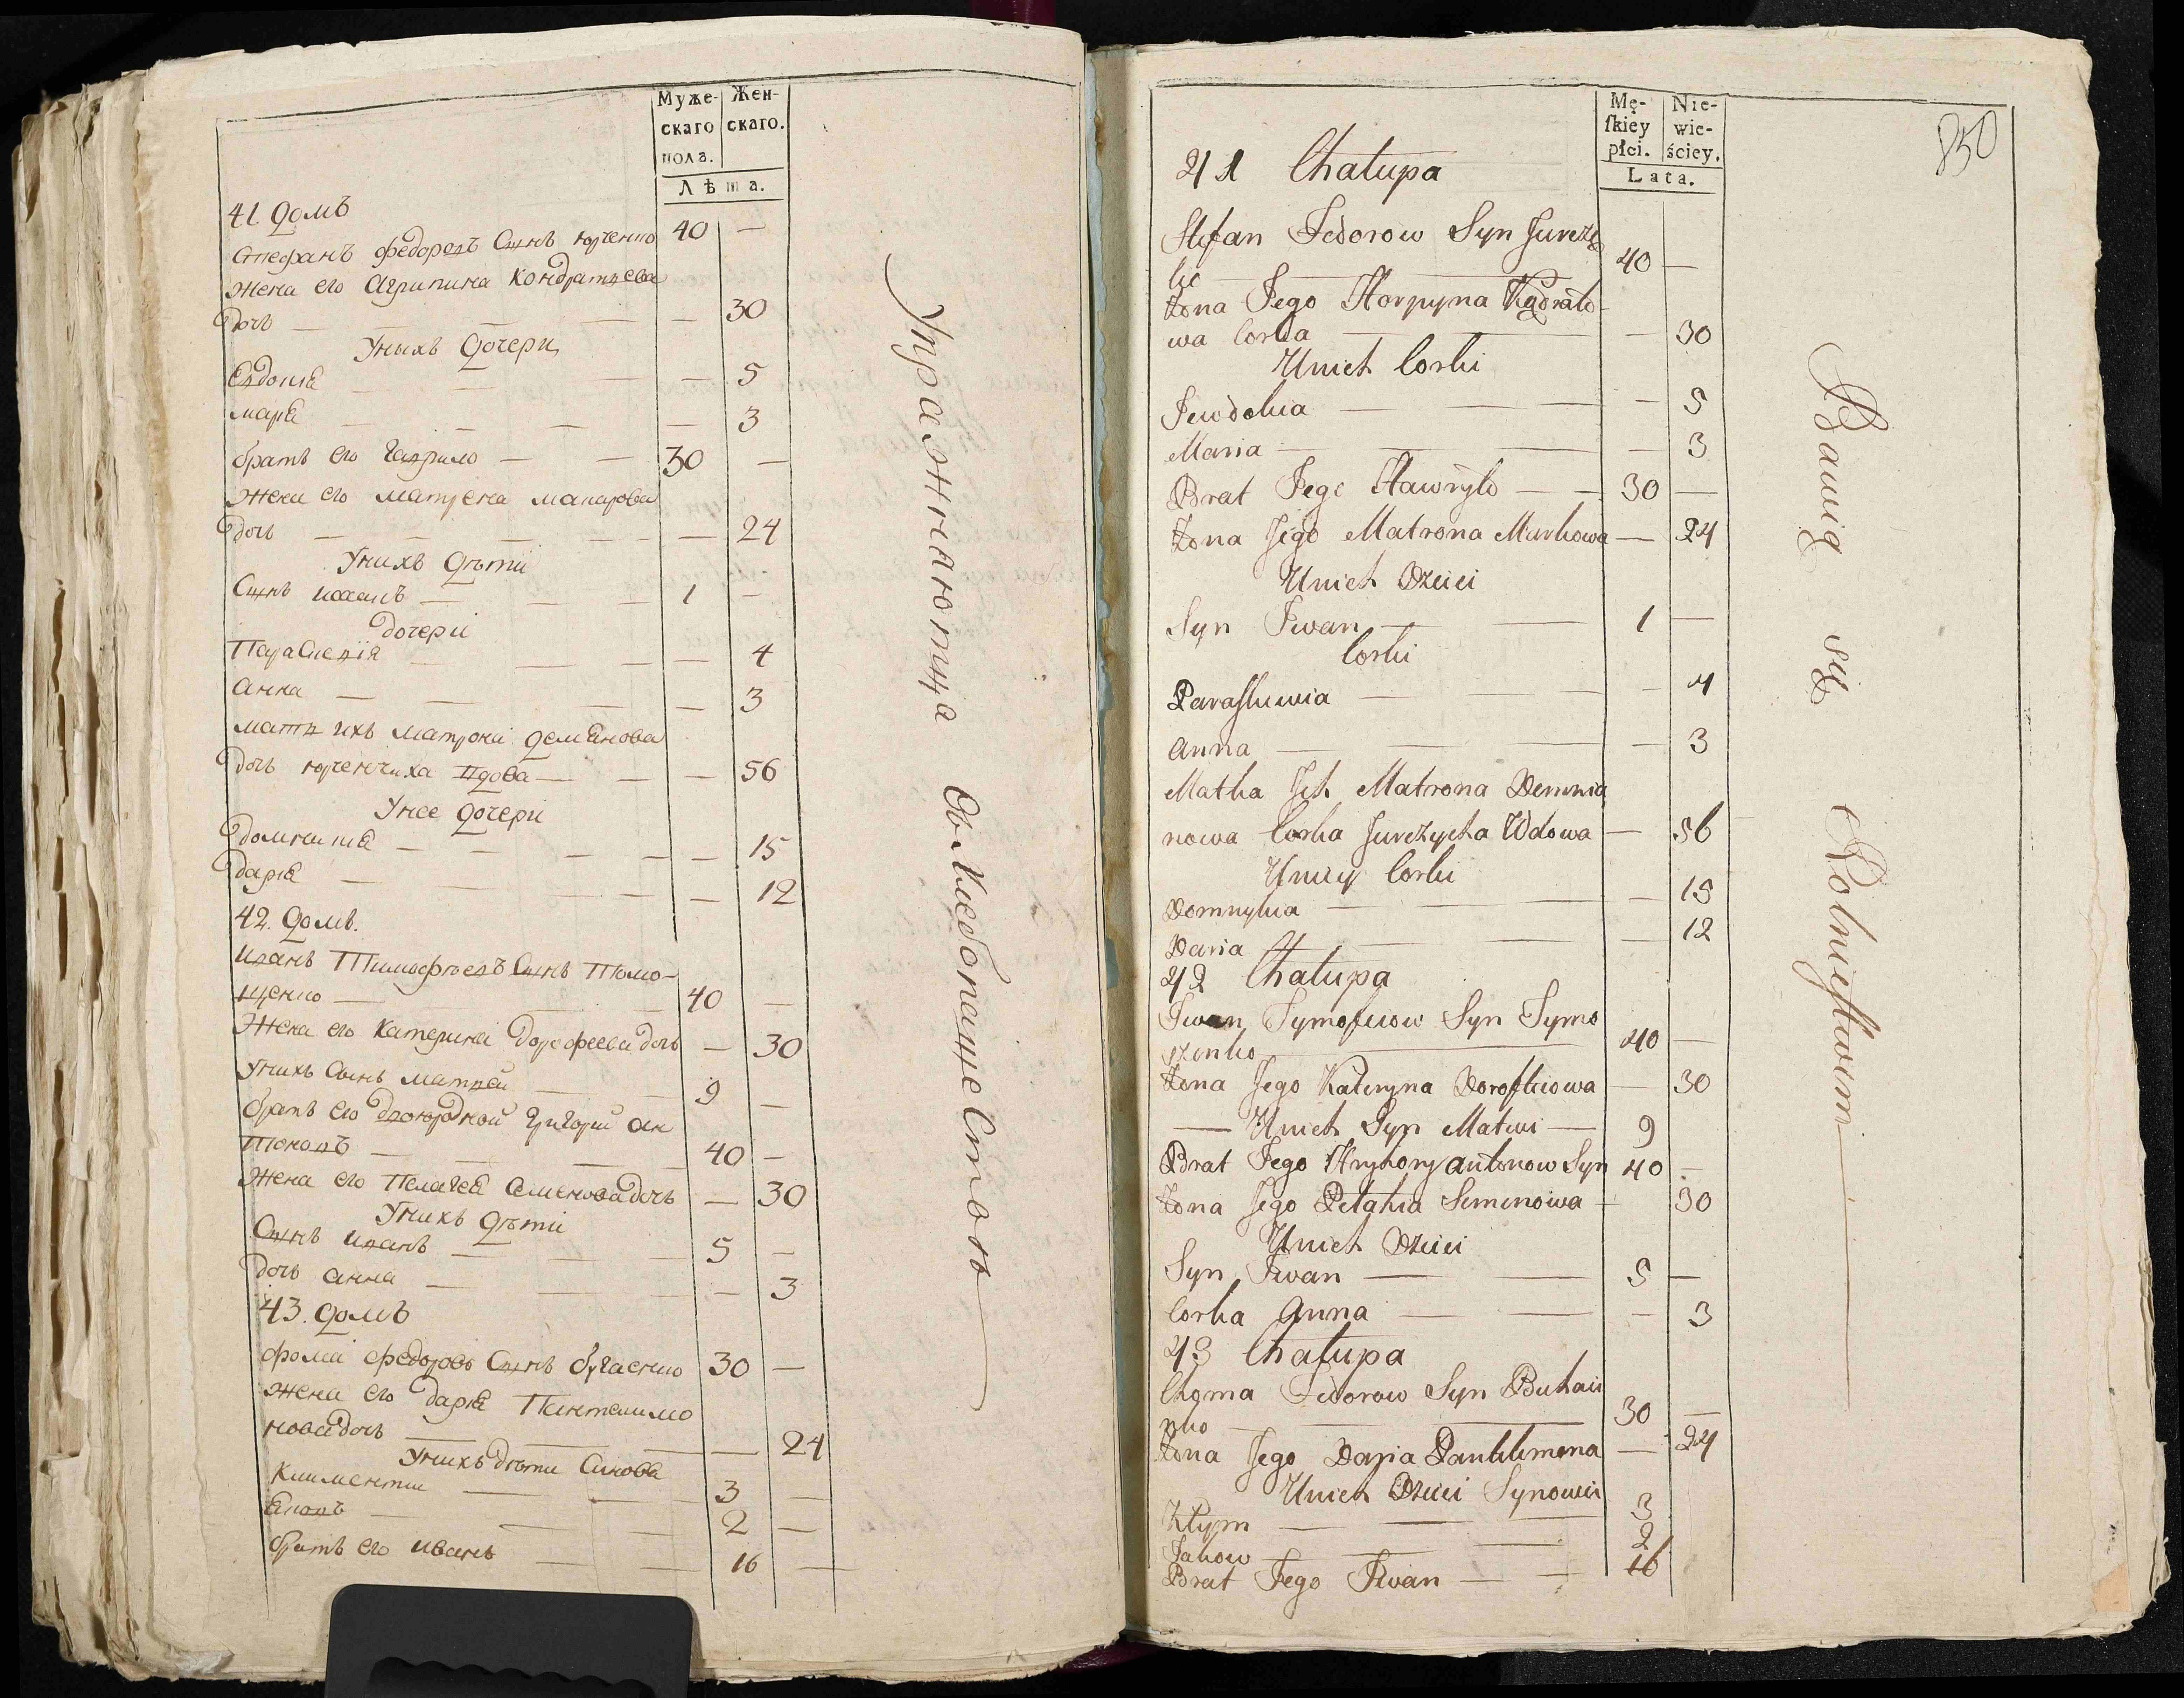 Муже-
Жен-
скаго
скаго.
пола.
Лѣта.
41. домъ
Стефанъ федоровъ Сынъ юрченко 40 —
жена его Агрипина Кондратцева
дочь — — — — — 30
Унихъ дочери
Евдокия — — — — 5
мария — — — — 3
братъ его Гаврило — — 30 —
жена его матрена макарова
дочь — — — — — 24
Унихъ дѣти
Сынъ иванъ — — — 1 —
дочери
Параскевія — — — — 4
анна — — — — 3
матъ ихъ матрона демянова
дочь юрченчиха вдова — — — 56
Унее дочери
домникия — — — — — 15
дария — — — — — 12
42. домъ.
иванъ Тимофѣевъ Сынъ Тимо-
щенко — — — 40 —
Жена его Катерина дорофеева дочь — 30
Унихъ Сынъ матвей — — 9 —
братъ его двоюродной григорий ан
тоновъ — — — — 40 —
жена его Пелагея Семенова дочь — 30
Унихъ дѣти
Сынъ иванъ — — — 5 —
дочь анна — — — — 3
43. домъ
фома федоровъ Сынъ бугаенко 30 —
жена его дария Пантелимо
нова дочь — — — — 24
Унихъ дѣти Синова
Климентии — — — 3 —
яковъ — — — 2 —
братъ его иванъ — — 16 —
Упражняютца Въ Хлебопашестовю
850
Mę-
Nie-
ſkiey
wie-
płci.
ściey.
Lata.
41 Chałupa
Stefan Fedorow Syn Jurcze
ko — — 40 —
Żona Jego Horpyna Kądrato
wa Corka — — — 30
Unich Corki
Jewdokia — — — — 5
Maria — — — — 3
Brat Jego Hawryło — — 30 —
Żona Jego Matrona Markowa — 24
Unich Dzieci
Syn Iwan — — 1 —
Corki
Paraskiewia — — — 4
Anna — — — — 3
Matka Jch Matrona Demnia
nowa Corka Jurczycha Wdowa — 56
Uniey Corki
Domnykia — — — — 15
Daria — — — 12
42 Chałupa
Iwan Tymofiiow Syn Tymo
szenko — 40 —
Żona Jego Kateryna Dorofiiowa — 30
— Unich Syn Matwi — 9
Brat Jego Hryhory Antonow Syn 40 —
Żona Jego Pelahia Semenowa — 30
Unich Dzieci
Syn Iwan — — 5 —
Corka Anna — — — 3
43 Chałupa
Choma Fedorow Syn Buhaii
nko — — 30 —
Żona Jego Daria Pantelimona — 24
Unich Dzieci Synowii
Kłym — — — 3
Jakow — — — 2
Brat Jego Iwan — — 16
Bawią się Rolnictwem —